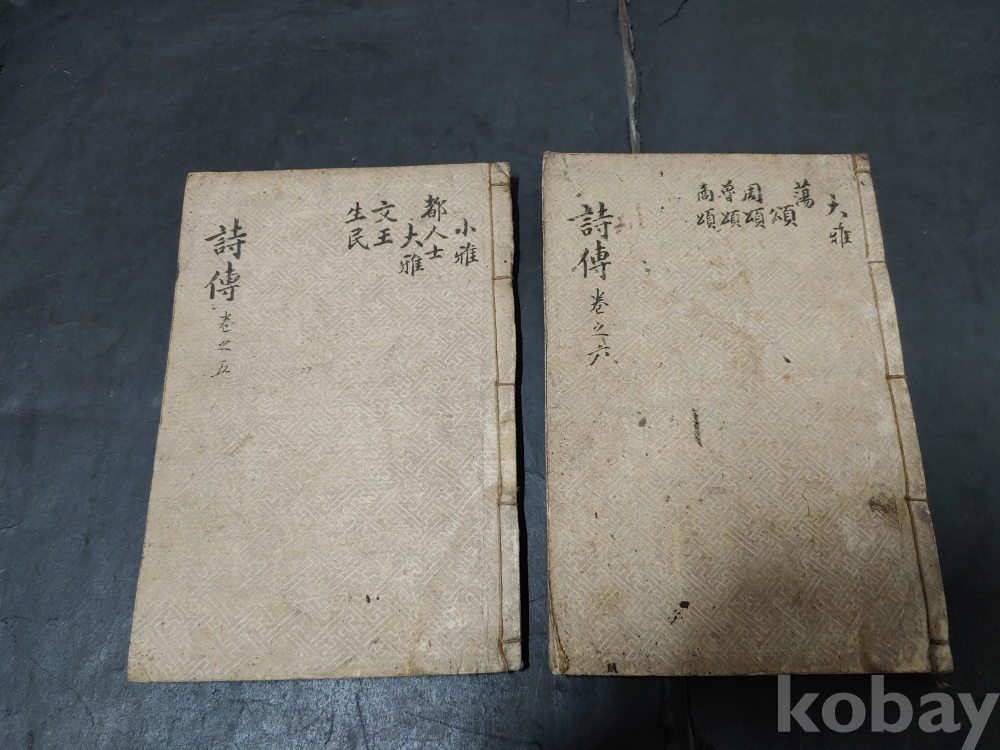 小雅
都人士
大雅
文王
生民
詩傳 卷之五
大雅
蕩
頌
周頌
魯頌
商頌
詩傳 卷之六
kobay